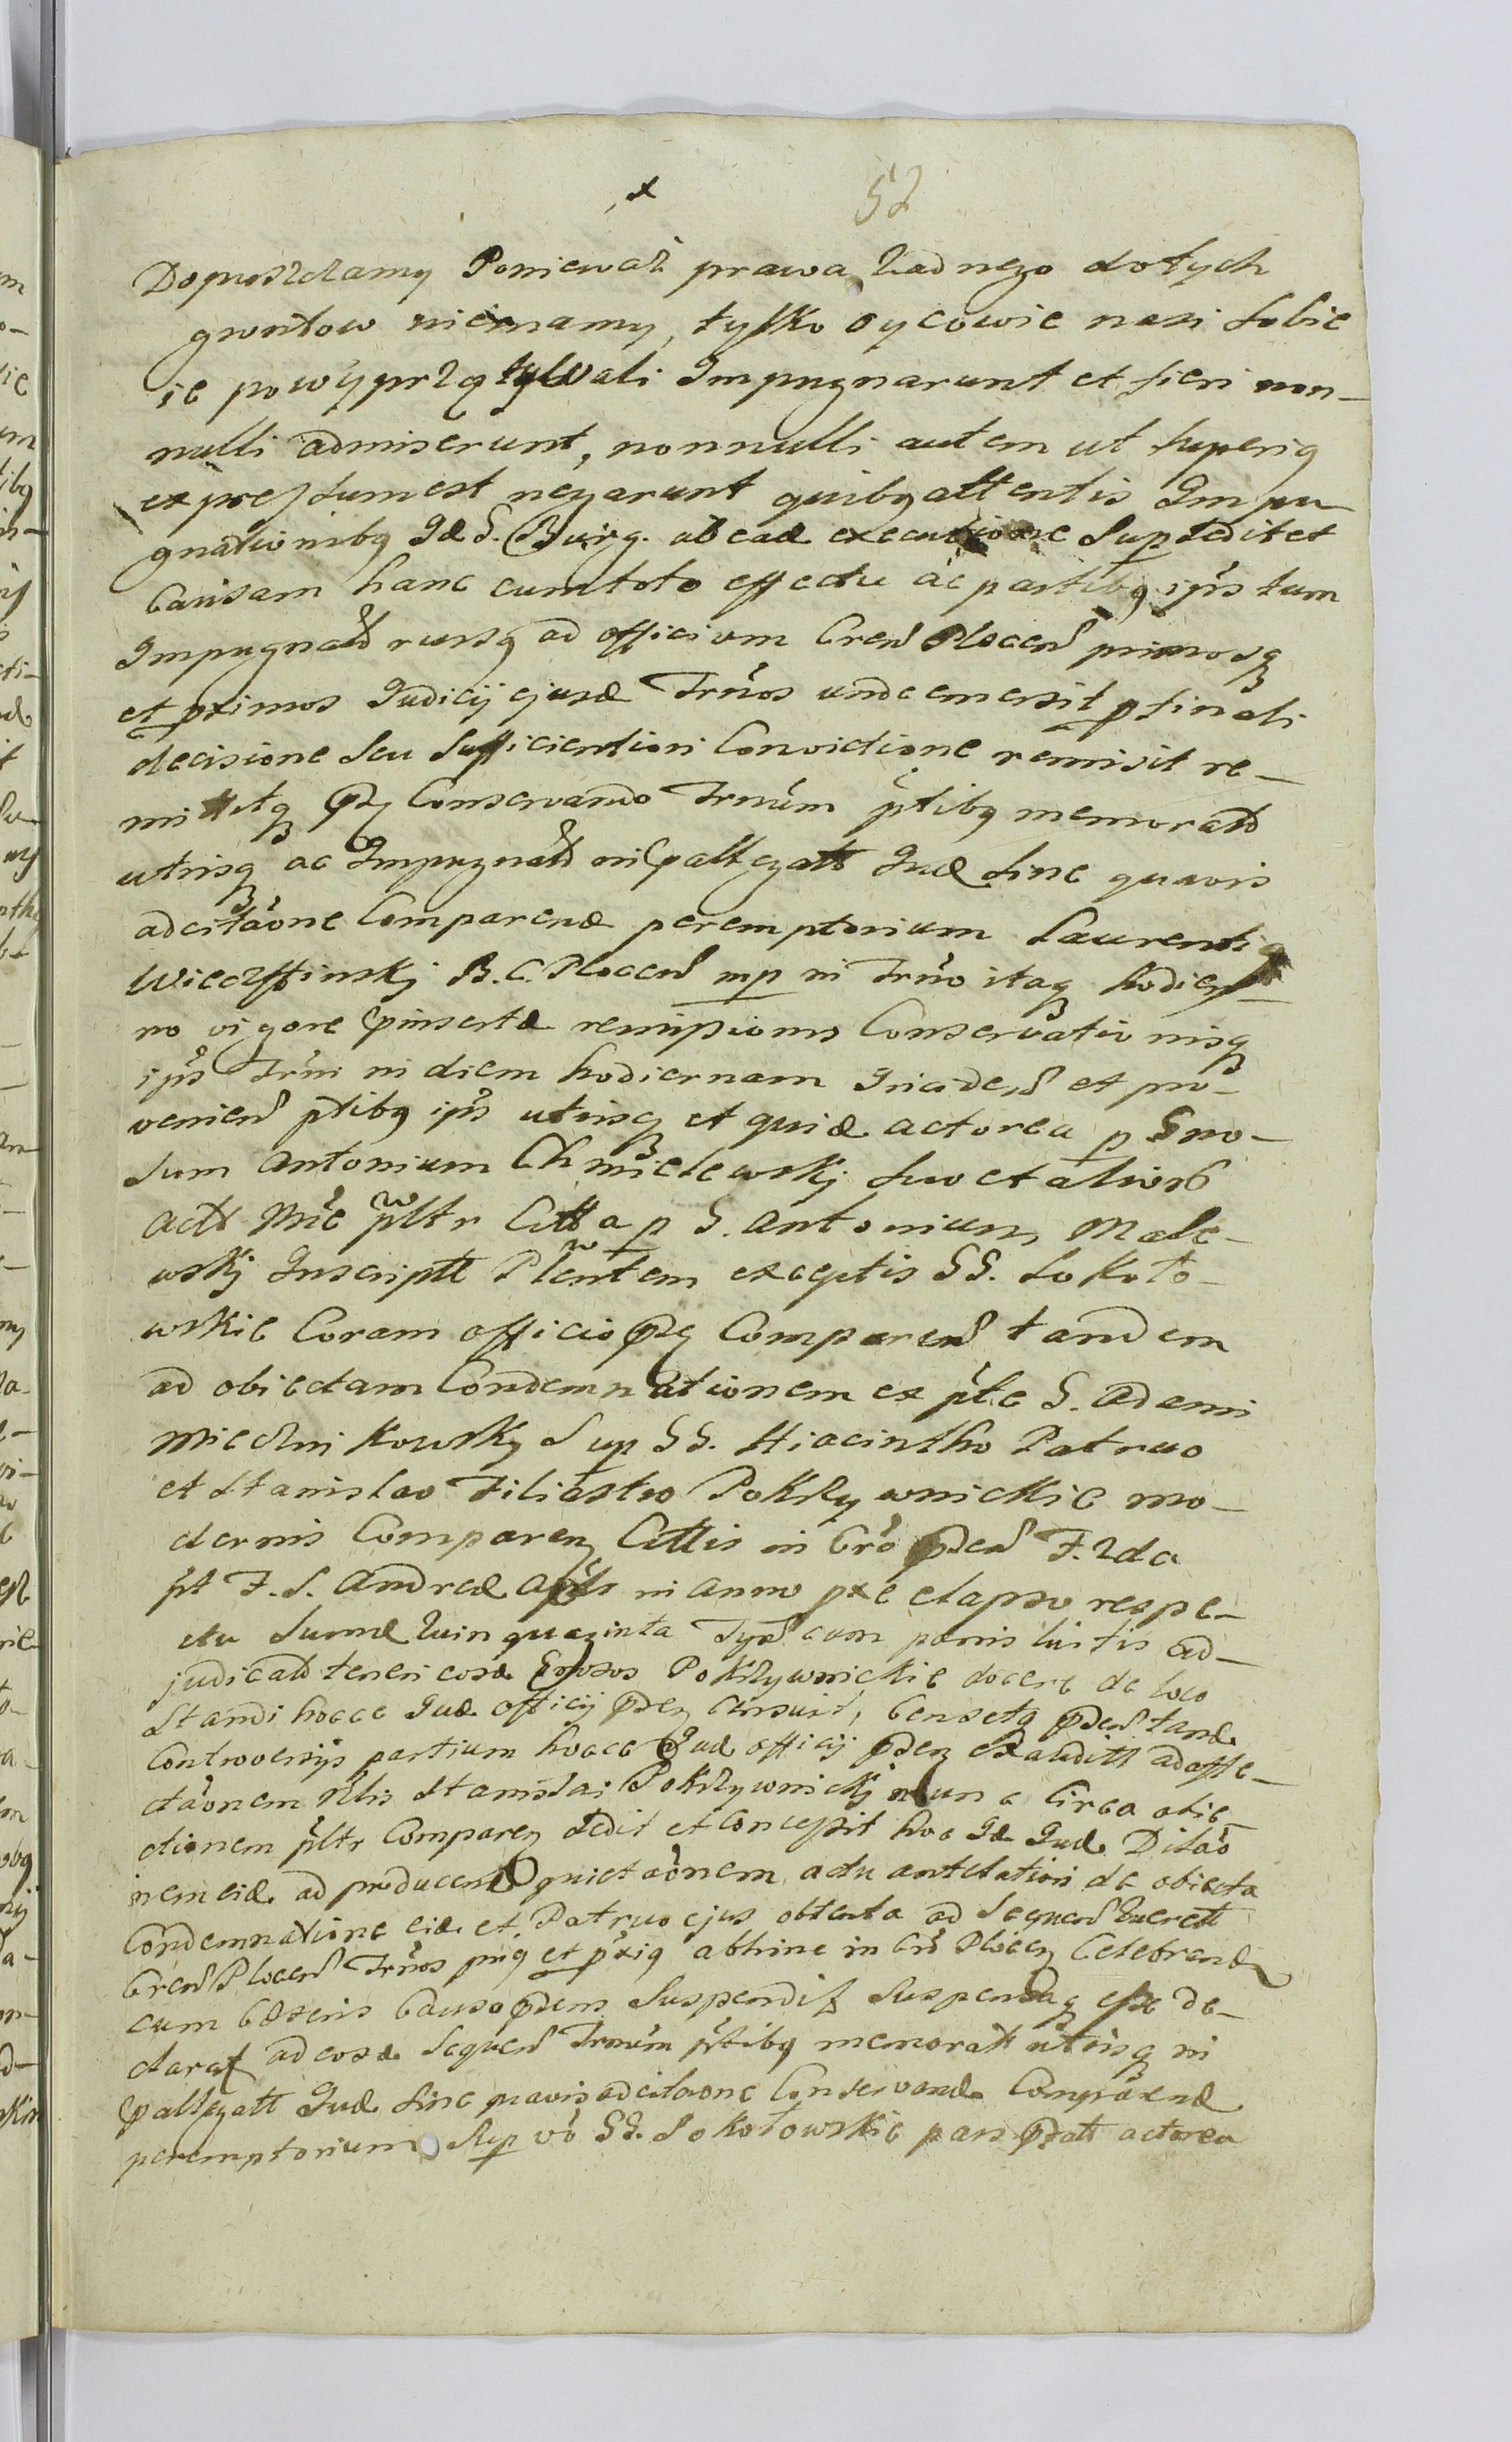 52
Dopuszczamy Poniewaz prawa zadnego do tych
gruntow niemamy, tylko oycowie nasi sobie
ie powyprzątywali Impugnarunt et fieri non-
nulli admiserunt, nonnulli autem ut superiq
expressum est negarunt quibq attentis Impu-
gnationibq Idē G. Burg. ab eadē executione Supsedit et
Causam hanc cum toto effectu ac partibq ips tum
Impugnatt rursq ad officium Cren Plocen primosq
et pximos Judicij ejusdē Trnos unde emersit p finali
decisione seu sufficientiori Convictione remisit re-
mittitq Conservando Trnum ptibq memoratt
utrisq ac Impugnatt in pallegatt Jud sine quavis
adcitaone Comparend peremptorium Laurentiq
B. C. Plocen mp in Trno itaq hodier-
no vigore pinsertæ remissionis Conservationisq
ips Trni in diem hodiernam Inciden et pro-
venien ptibq ips utrisq et quidē actorea p Gno-
sum Antonium Chmielewskj suo et alior
Actt nie pltr Citta p G. Antonium Male-
wskj Inscriptt Plentem exceptis GG. Sokoło-
wskie Coram officio Comparen tandem
ad obiectam Condemnationem ex pte G. Adami
Miecznikowsky Sup GG. Hiacintho Patruo
et Stanislao Filiastro Pokrzywnickie mo-
dernis Comparen Cittis in Cro F. 2da
pt F. S. Andreæ Apli in anno pxe elapso respe-
ctu Summæ quinquaginta cum pænis luitis ad-
judicatt teneri eosdē Gnosos Pokrzywnickie docere de loco
Standi hocce Jud officij Censuit, Censetq tandē
Controversijs partium hocce Jud officij Exauditt ad affe-
ctaonem Nlis Stanislai Pokrzywnickj nunc Circa obie-
ctionem pltr Comparen dedit et concessit hoc Idē Jud Dilao
nem eidē ad producend quietaonem actu antelatiori de obiecta
Condemnatione eidē et Patruo ejus obtenta ad Sequen
Cren Plocen Trnos et pxiq abhinc in Cro Plocen Celebrand
cum Cæteris Causa Suspendit Suspensaq esse de-
clarat ad eosdē Sequen Trnum ptibq memoratt utrisq in
pallegatt Jud sine quavis adcitaone Conservand Comparend
peremptorium Sup vo GG. Sokołowskie pars actorea